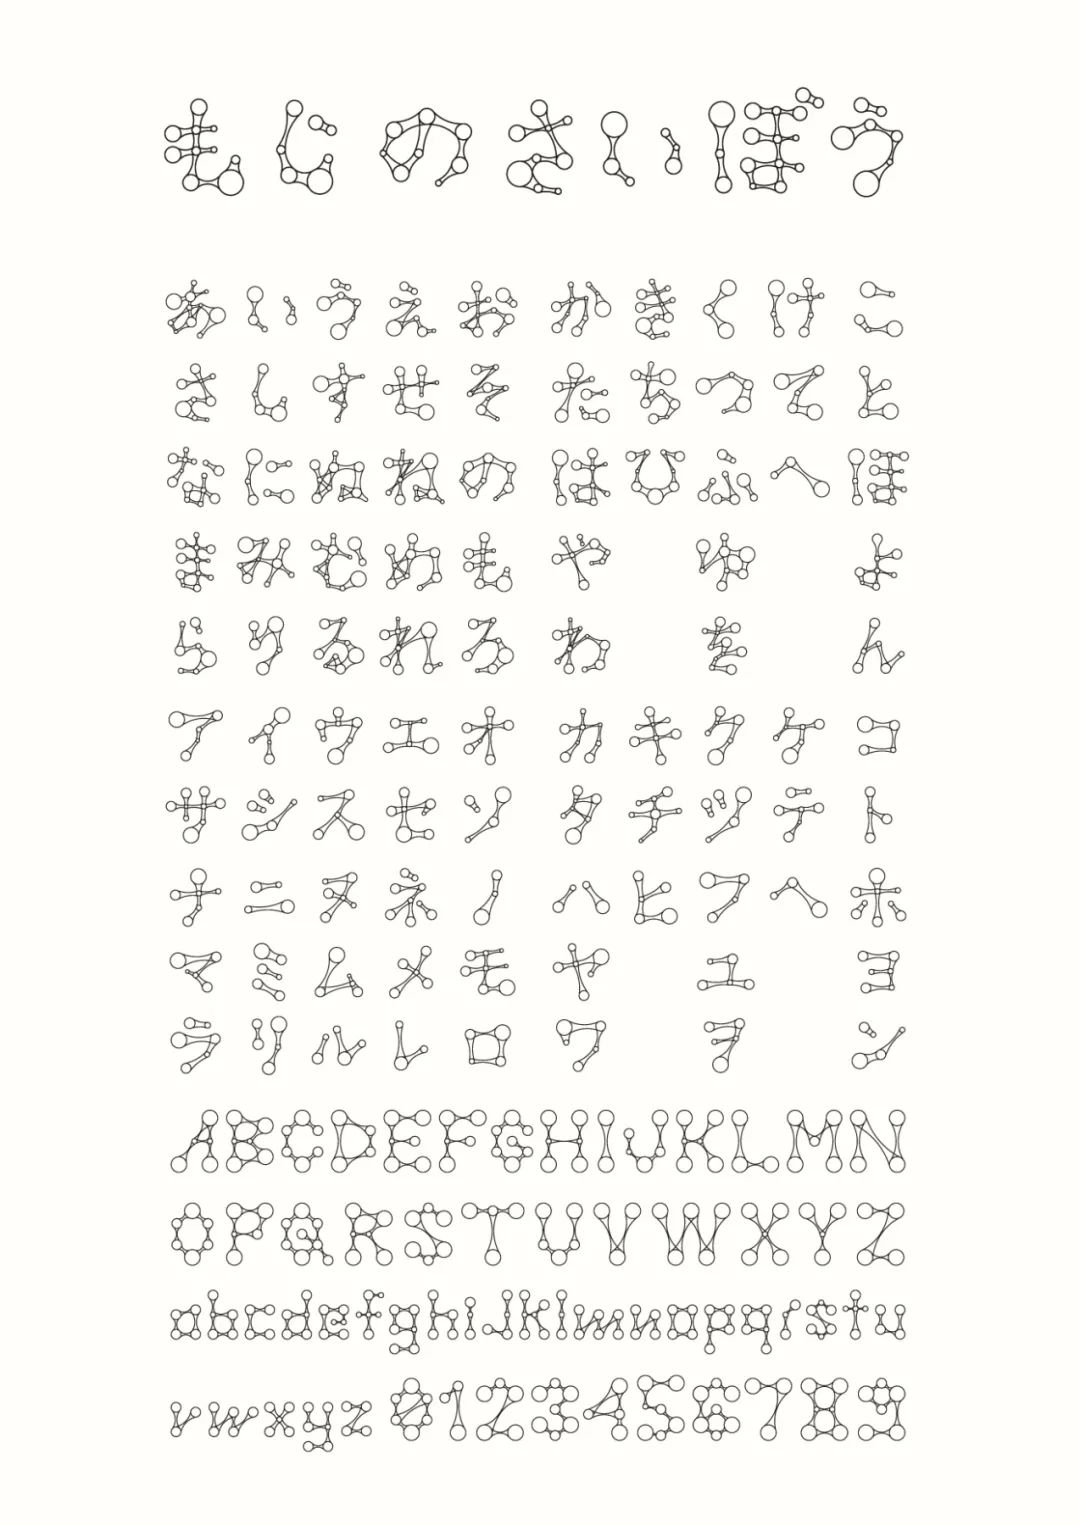 もじのさいぼう
あいうえお かきくけこ
さしすせそ たちつてと
なにぬねの はひふへほ
まみむめも や ゆ よ
らりるれろ わ を ん
アイウエオ カキクケコ
サシスセソ タチツテト
ナニヌネノ ハヒフヘホ
マミムメモ ヤ ユ ヨ
ラリルレロ ワ ヲ ン
ABCDEFGHIJKLMN
OPQRSTUVWXYZ
abcdefghijklmnopqrstu
vwxyz 0123456789